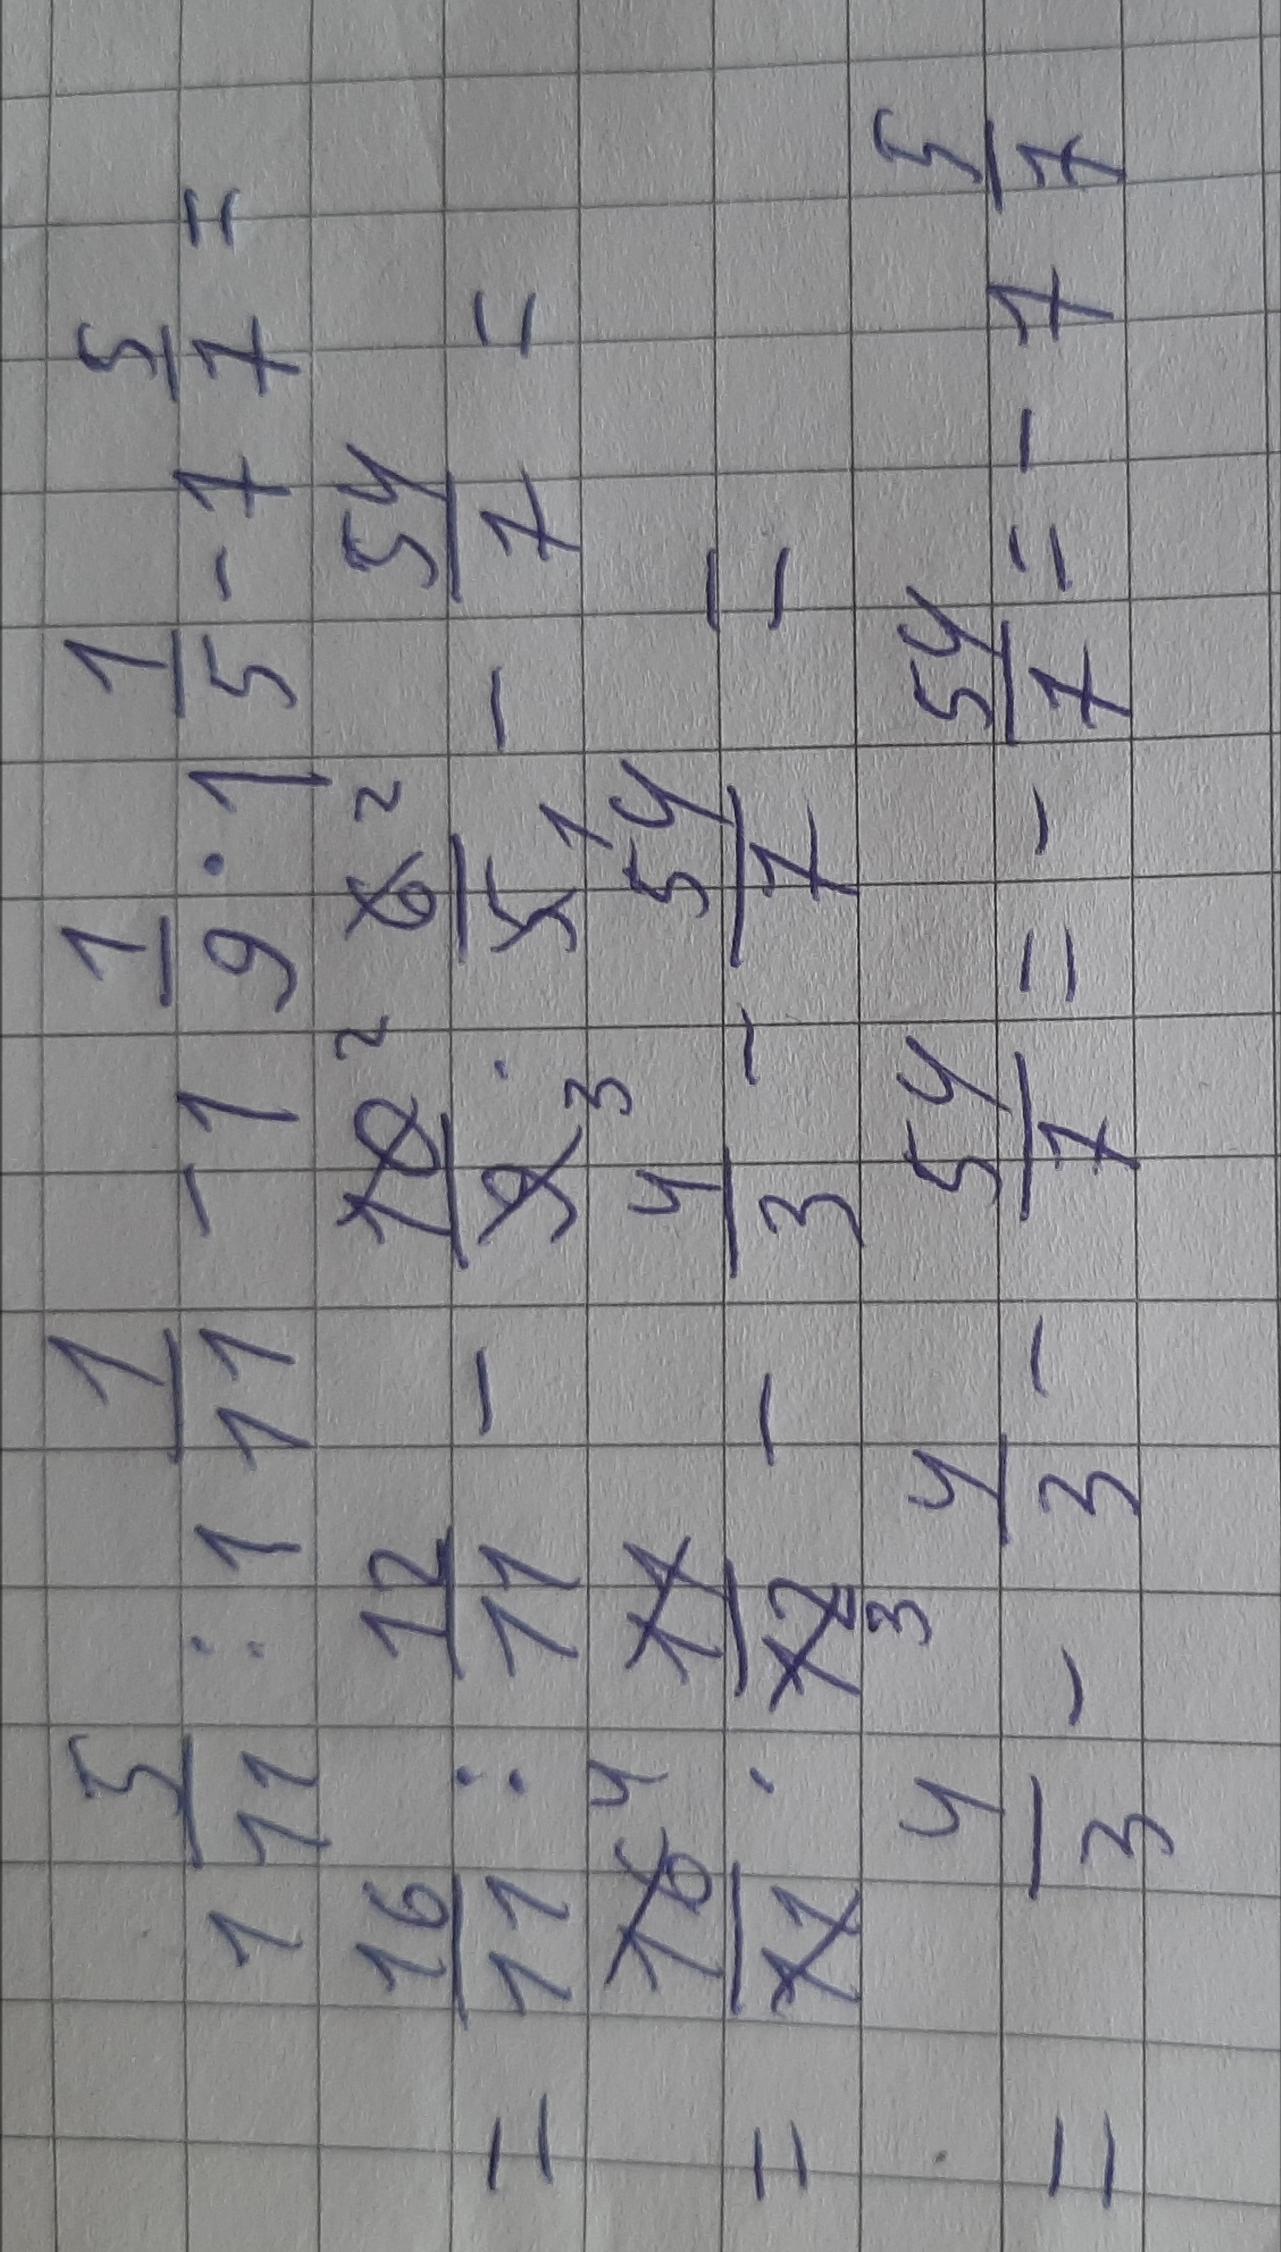 1 5/11 : 1 1/11 - 1 1/9 · 1 1/5 - 7 5/7 =
= 16/11 : 12/11 - 10²/9³ · 6²/5¹ - 54/7 =
= 16⁴/11 · 11/12³ - 4/3 - 54/7 =
= 4/3 - 4/3 - 54/7 = - 54/7 = - 7 5/7